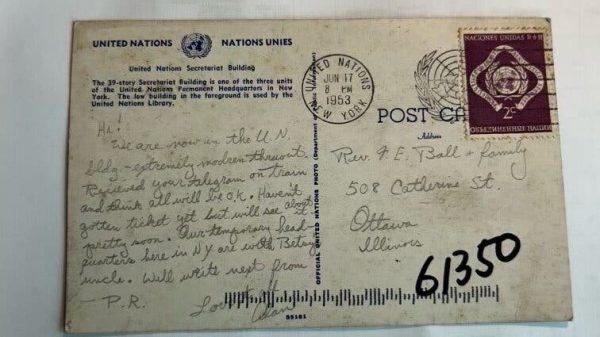 UNITED NATIONS NATIONS UNIES
United Nations Secretariat Building
The 39-story Secretariat Building is one of the three units
of the United Nations Permanent Headquarters in New
York. The low building in the foreground is used by the
United Nations Library.
Hi!
We are now in the U.N.
bldg. - extremely modren thruout.
Recieved your telegram on train
and think all will be O.K. Haven't
gotten ticket yet but will see about it
pretty soon. Our temporary head-
quarters here in NY are with Betsy
uncle. Will write next from
- P.R.
Love
55181
OFFICIAL UNITED NATIONS PHOTO
UNITED NATIONS
JUN 17
8 PM
1953
NEW YORK
NACIONES UNIDAS
2c
POST CA
Address
Rev. F. E. Ball & family
508 Catherine St.
Ottawa
Illinois
61350